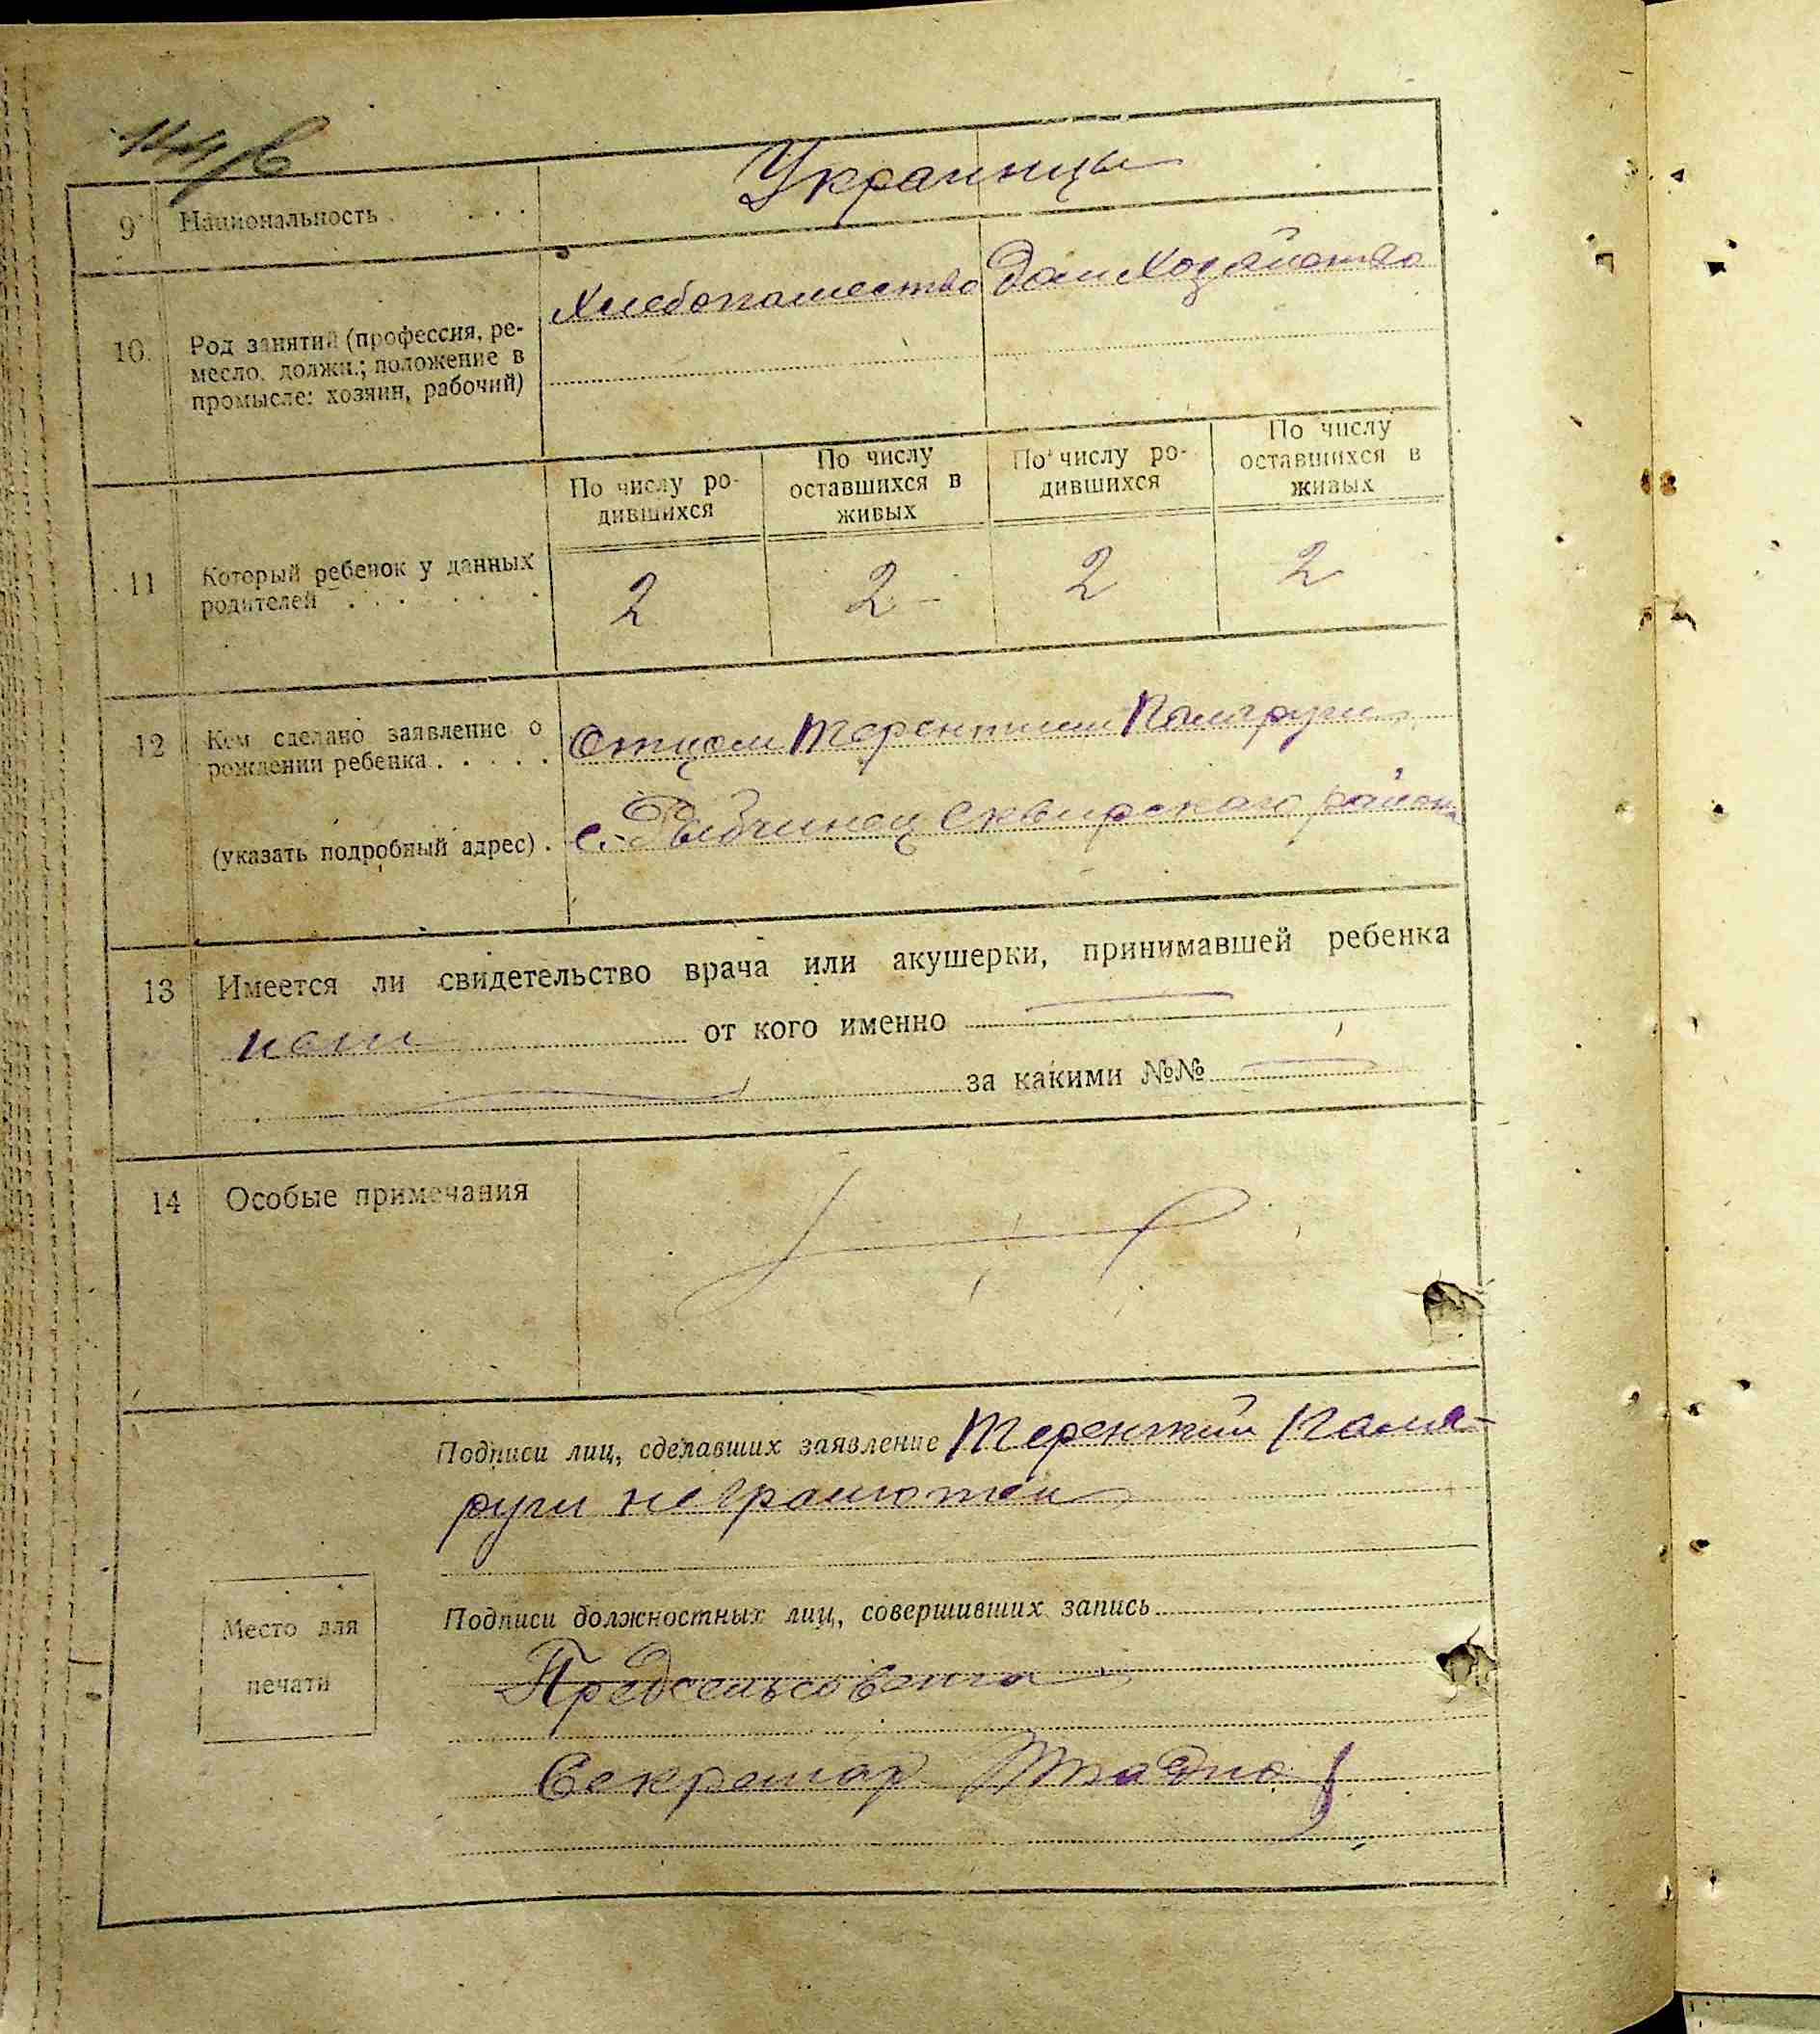 144/в
9 Национальность . . . . Украинцы
10. Род занятий (профессия, ре-
месло, должн.; положение в
промысле: хозяин, рабочий)
Хлебопашество Дом Хозяйство
По числу ро-
дившихся
По числу
оставшихся в
живых
По числу ро-
дившихся
По числу
оставшихся в
живых
11 Который ребенок у данных
родителей . . . . . .
2 2 2 2
12 Кем сделано заявление о
рождении ребенка . . . . .
Отцом Терентием
(указать подробный адрес) . с. Рыбчинец Сквирского района
13 Имеется ли свидетельство врача или акушерки, принимавшей ребенка
от кого именно
за какими №№
14 Особые примечания
Подписи лиц, сделавших заявление Терентий
неграмотен
Подписи должностных лиц, совершивших запись
Место для
печати
Предсельсовета
Секретар